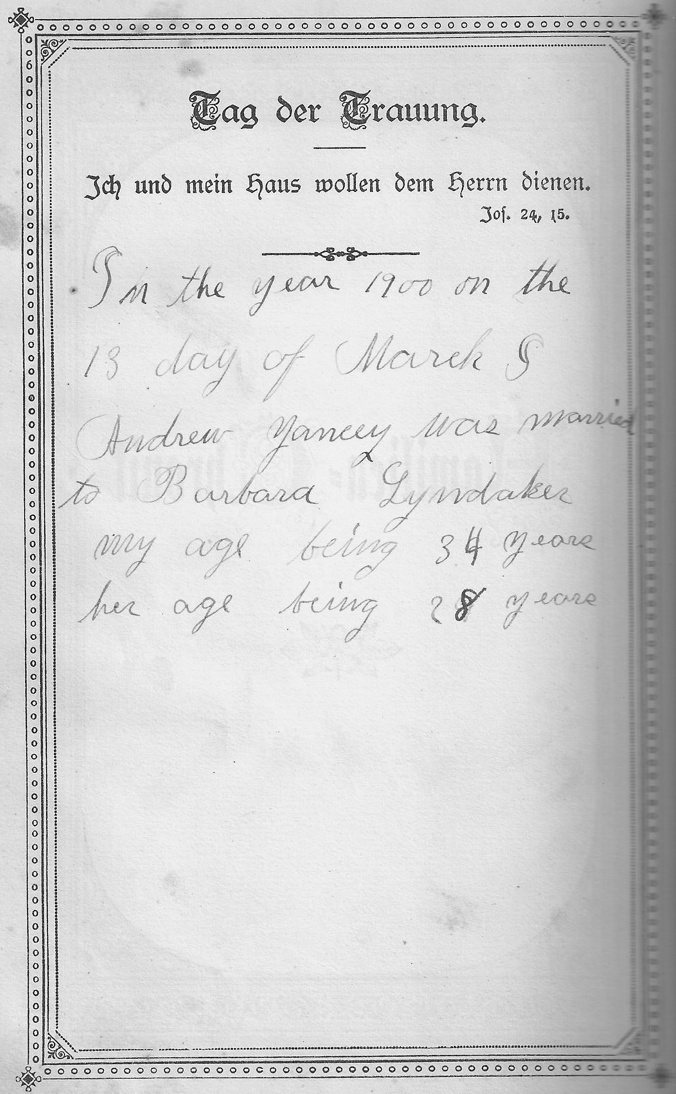 Tag der Trauung.
Ich und mein Haus wollen dem Herrn dienen.
Jos. 24, 15.
In the year 1900 on the
13 day of March I
Andrew Yancey was married
to Barbara Lyndaker
my age being 34 years
her age being 28 years